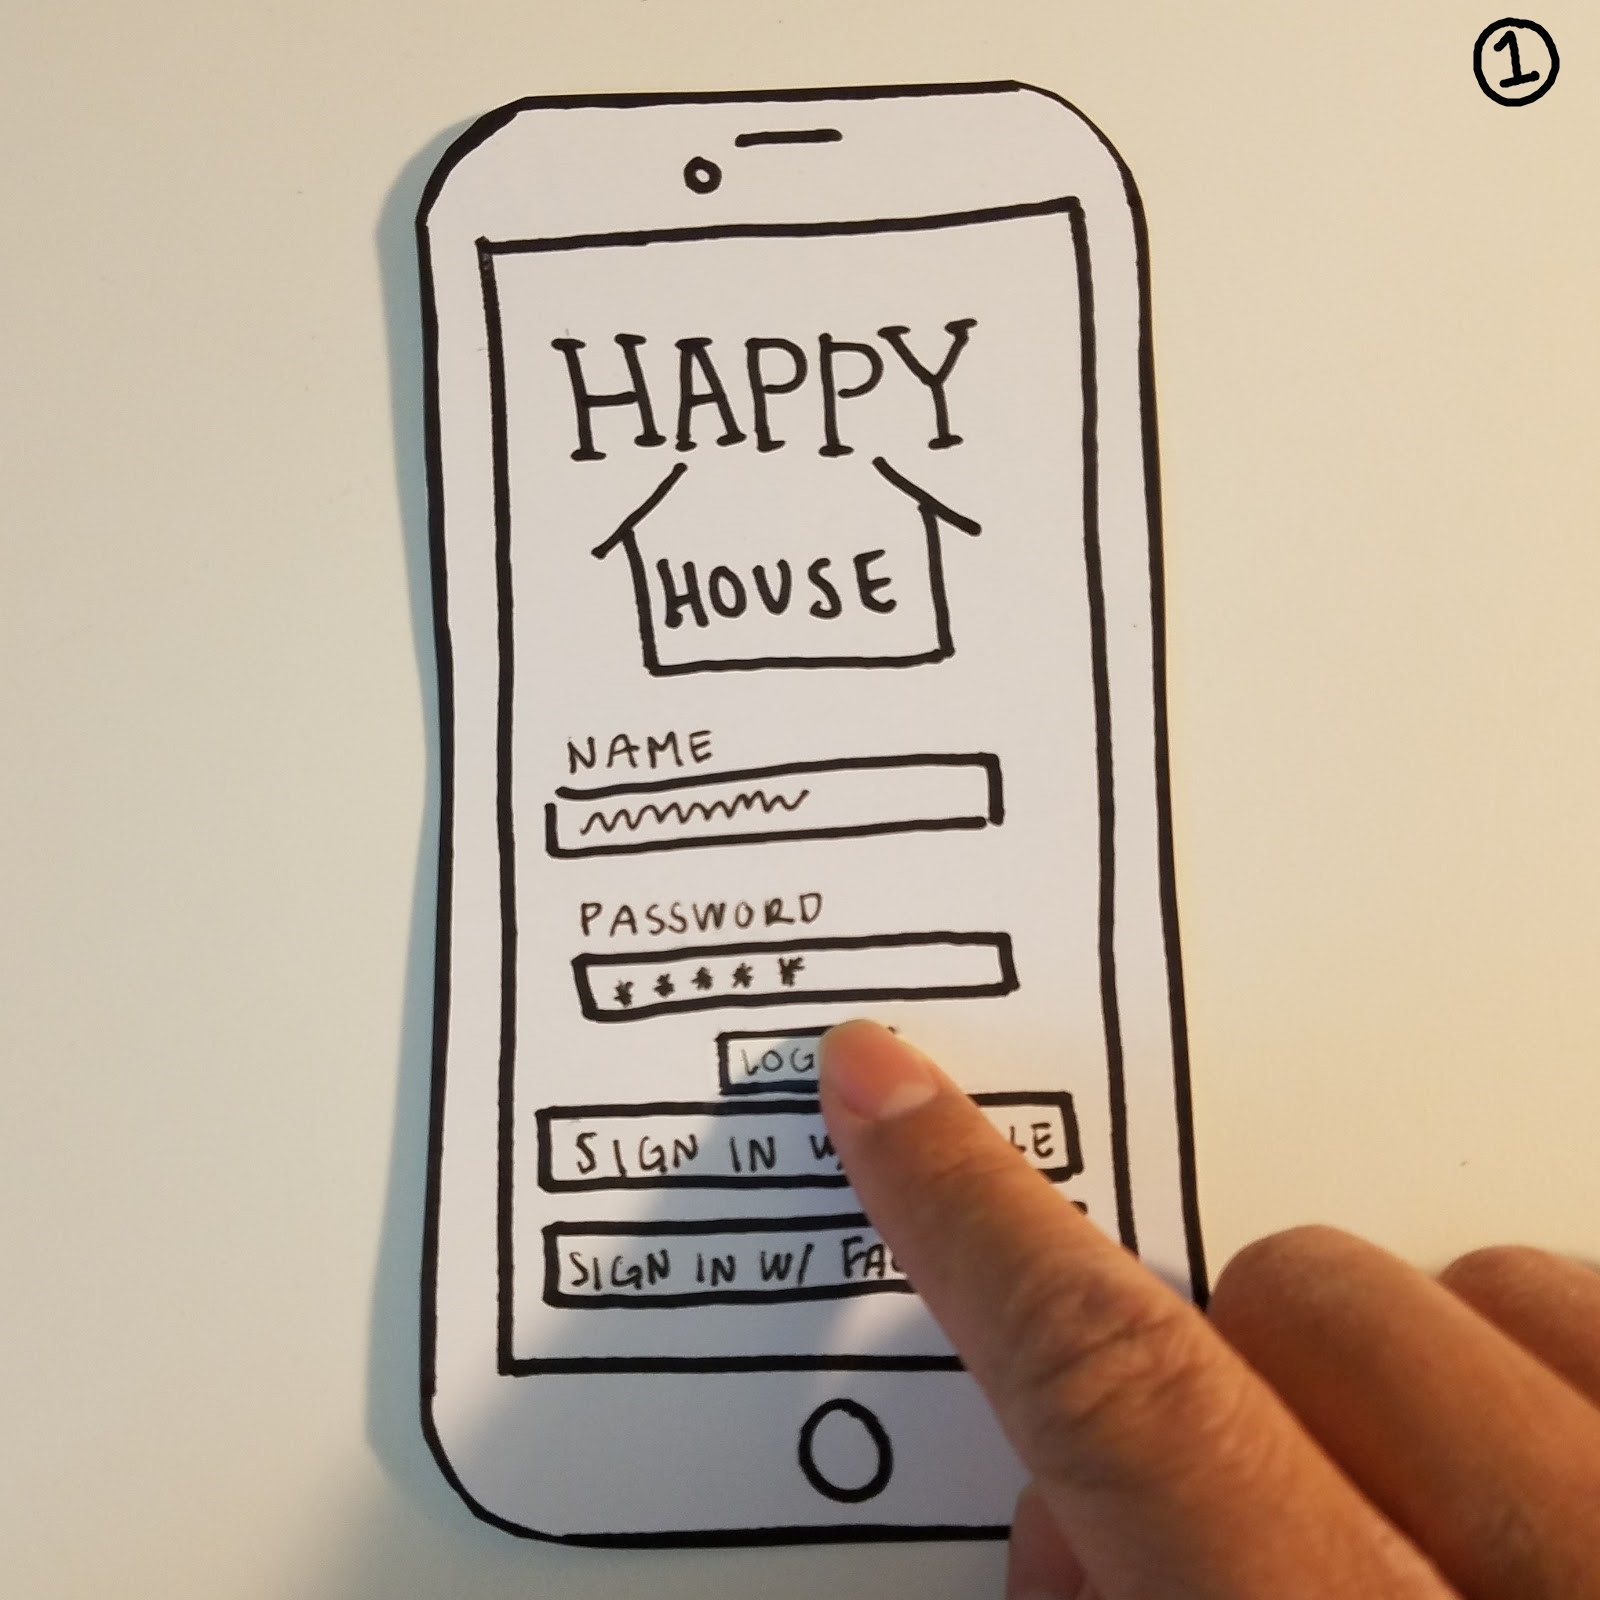 1
HAPPY
HOUSE
NAME
PASSWORD
*****
LOG
SIGN IN W/
SIGN IN W/ FAC